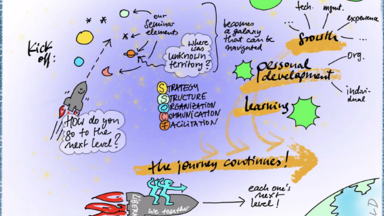 Kick
off:
our
Seminar
elements
where
was
unknown
territory?
becomes
a galaxy
that can be
navigated
tech.
mgmt.
experience
Growth
Org.
personal
development
indi-
vidual
Learning
STRATEGY
STRUCTURE
ORGANIZATION
COMMUNICATION
FACILITATION
How do you
go to the
next level?
the journey continues!
We together
each one's
next
level!